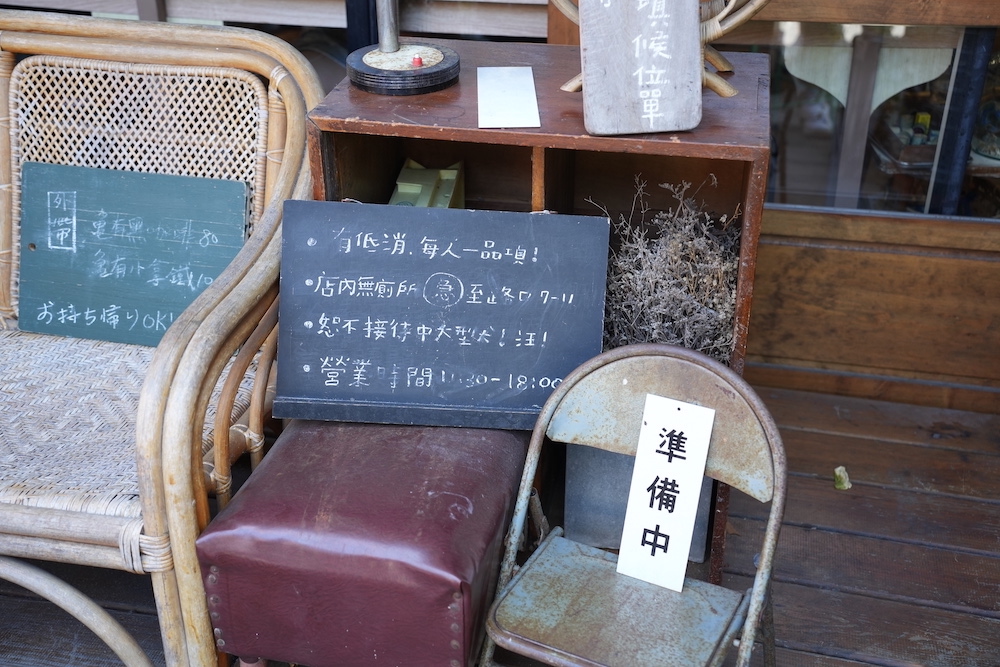 填候位單
外帶
龜有黑咖啡 80
龜有小拿鐵
お持ち帰りOK!
• 有低消、每人一品項!
• 店內無廁所 急 至路口 7-11
• 恕不接待中大型犬!汪!
• 營業時間 11:30-18:00
準備中